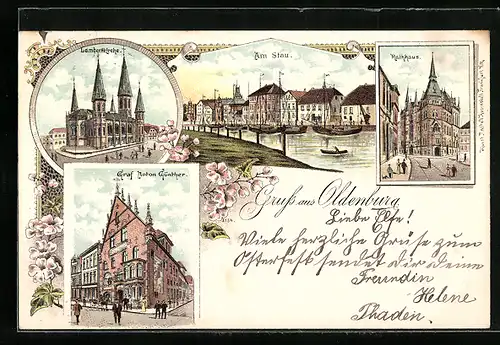 Lambertikirche.
Am Stau.
Rathhaus.
Graf Anton Günther.
Gruß aus Oldenburg
Liebe Else!
Viele herzliche Grüße zum
Osterfest sendet dir deine
Freundin
Helene
Thaden.